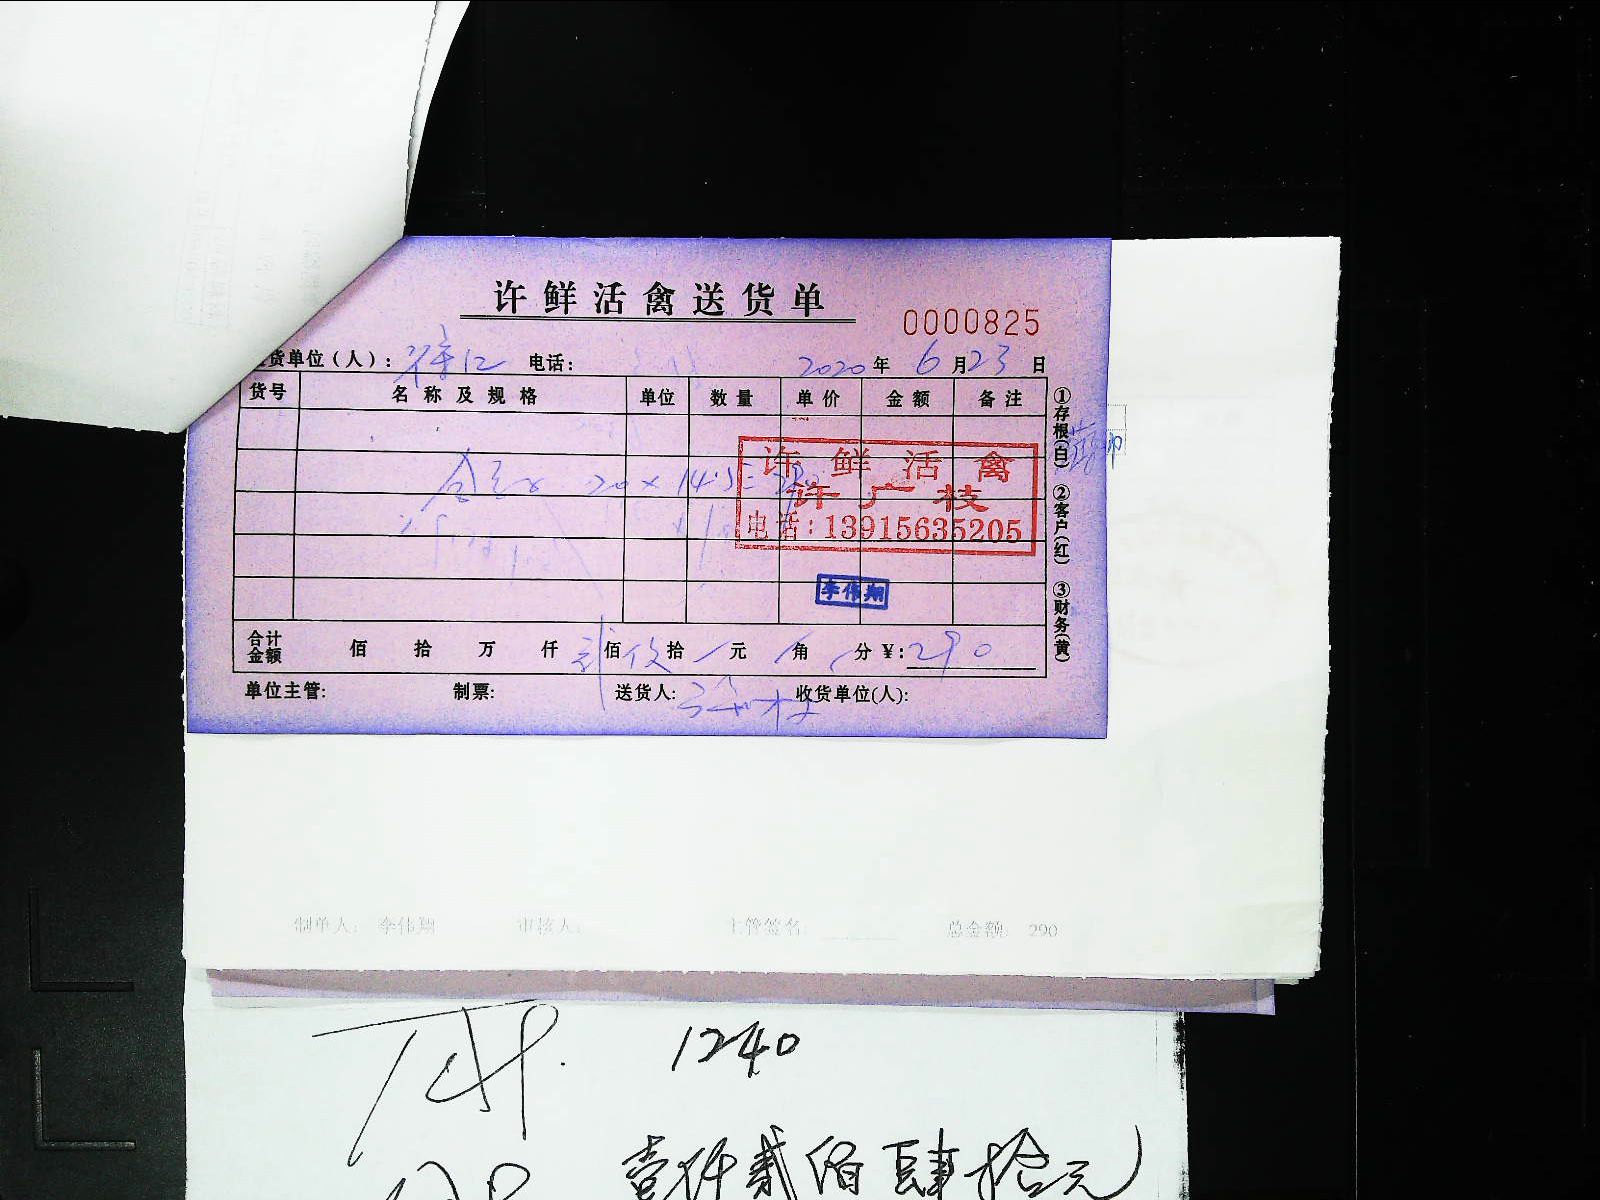 许鲜活禽送货单
0000825
货单位(人): 电话: 2020年6月23日
货号 名称及规格 单位 数量 单价 金额 备注
①存根(白) ②客户(红) ③财务(黄)
20×14.5=
许鲜活禽
许广枝
电话:13915635205
李伟翔
合计金额 佰 拾 万 仟 贰佰 玖拾 元 角 分 ¥:290
单位主管: 制票: 送货人: 收货单位(人):
制单人: 李伟翔 审核人: 主管签名: 总金额: 290
1240
壹仟贰佰肆拾元